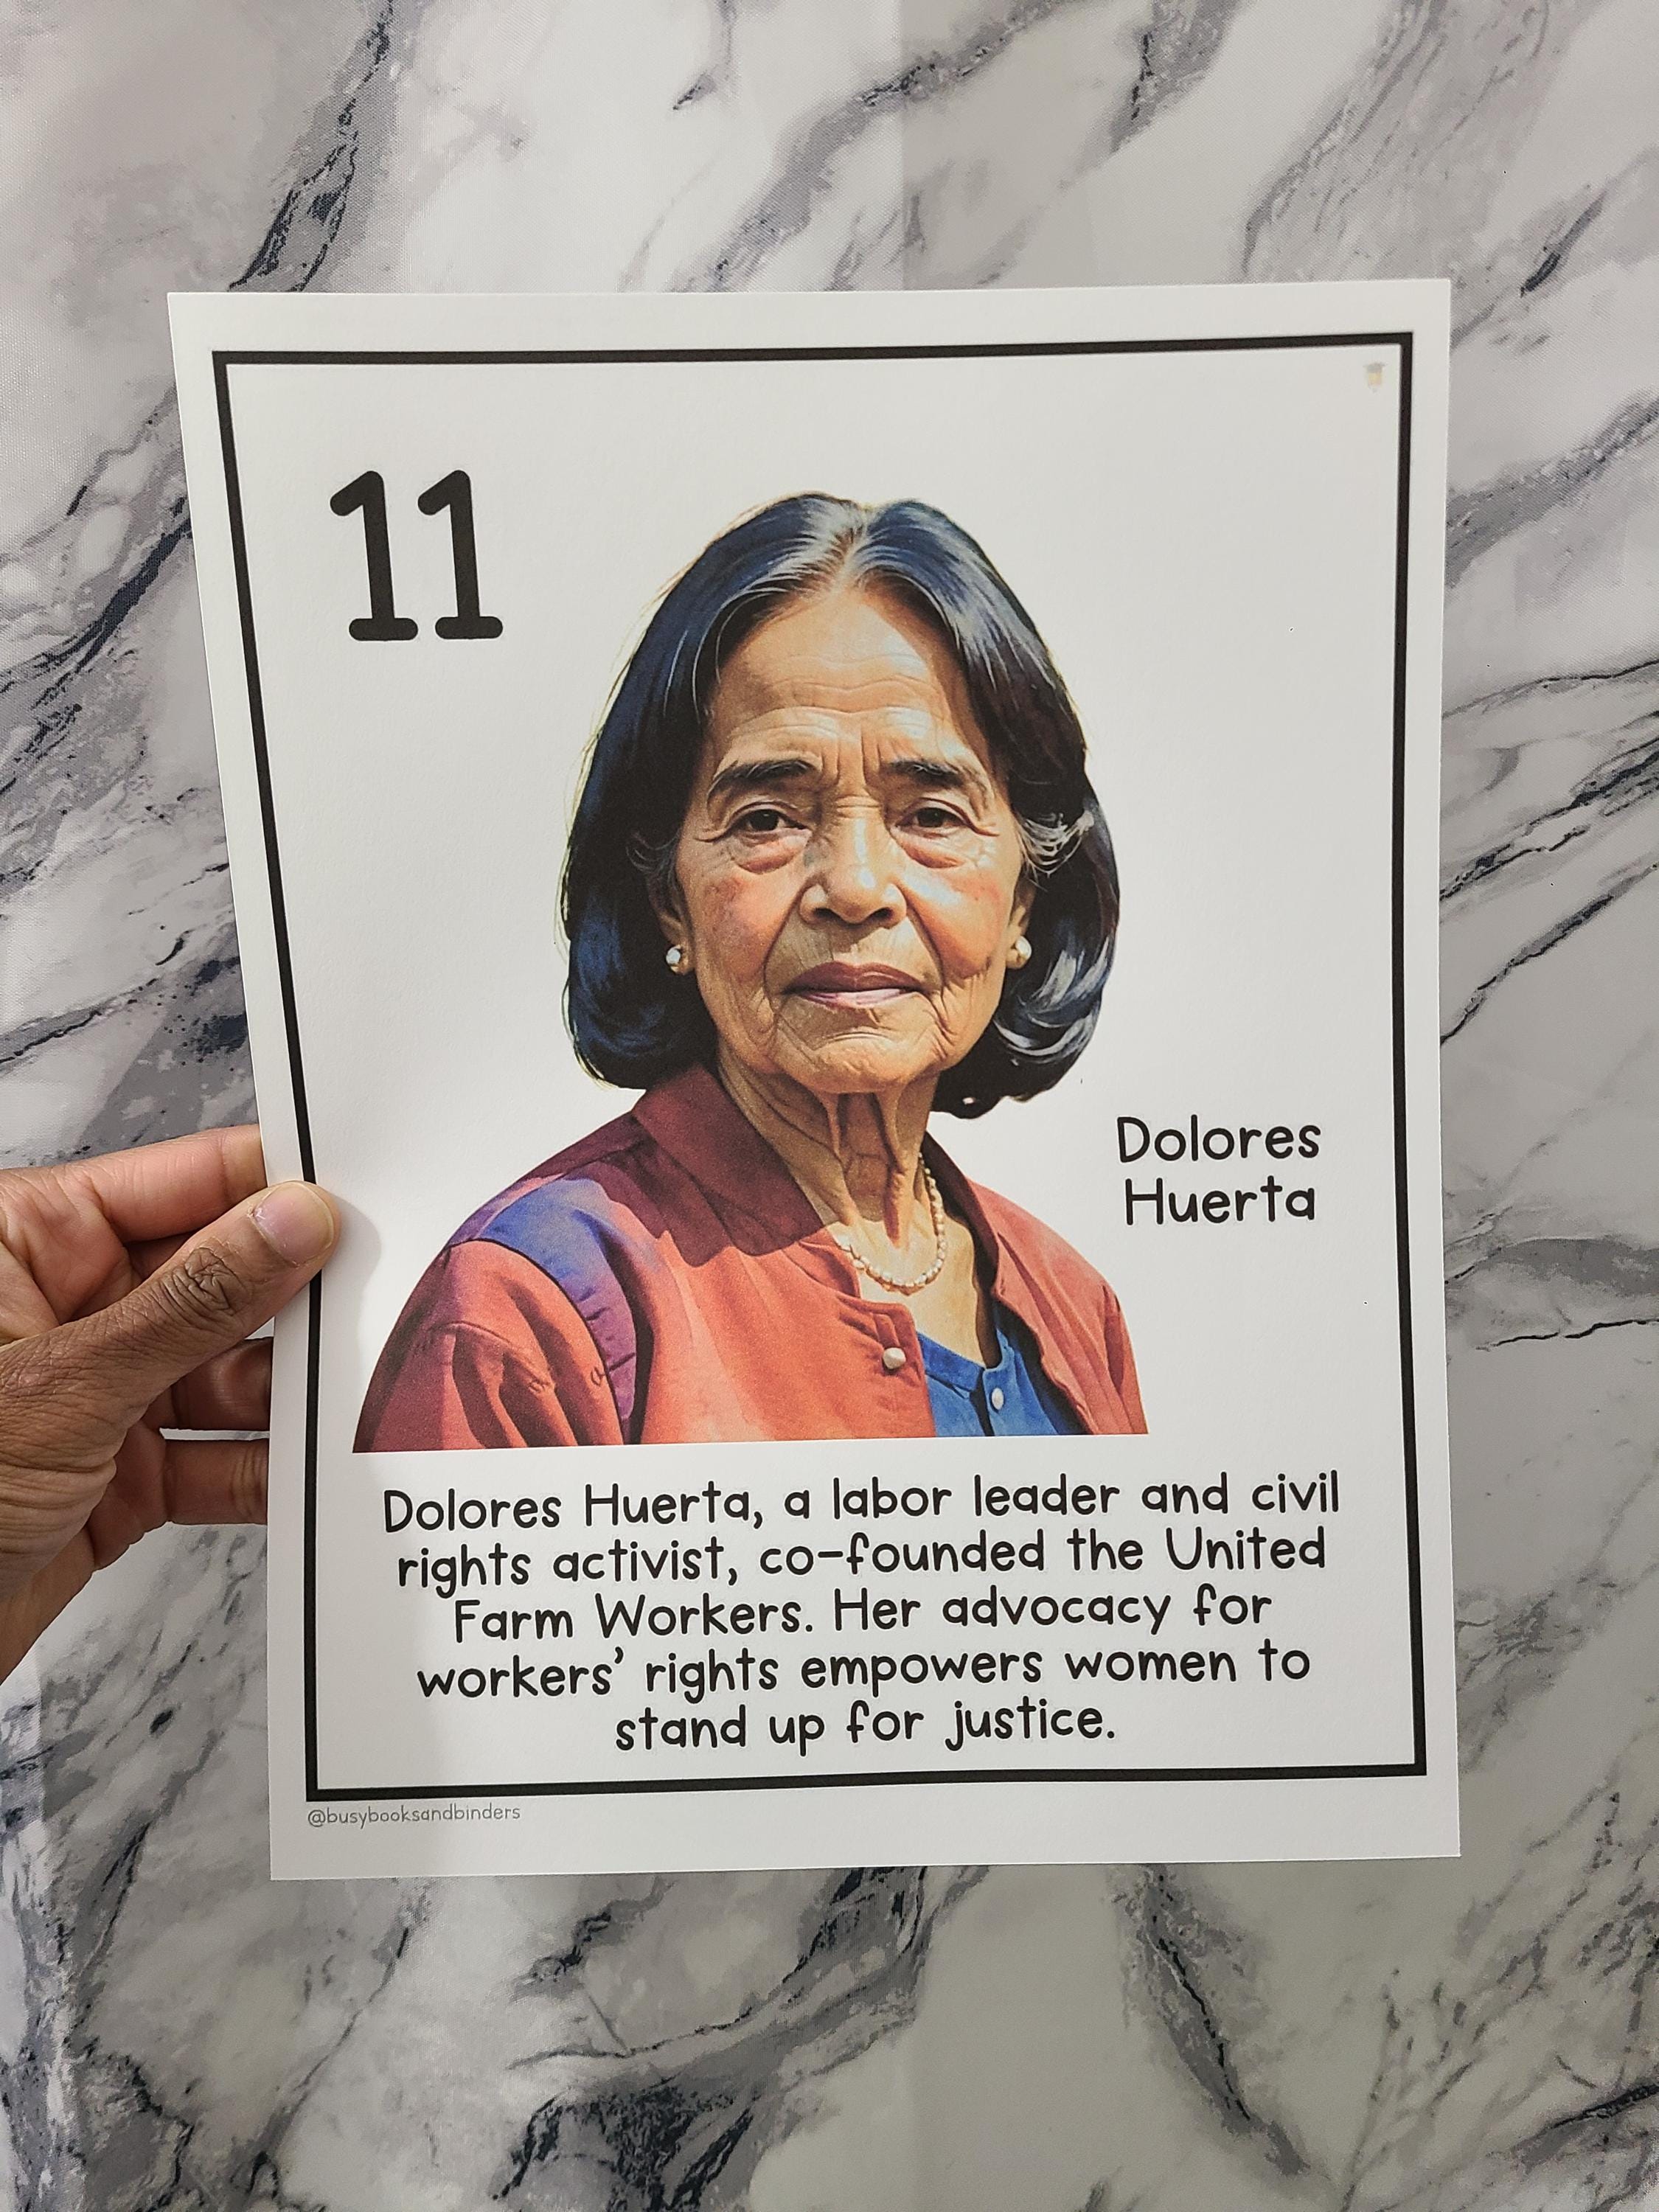 11
Dolores
Huerta
Dolores Huerta, a labor leader and civil
rights activist, co-founded the United
Farm Workers. Her advocacy for
workers' rights empowers women to
stand up for justice.
@busybooksandbinders